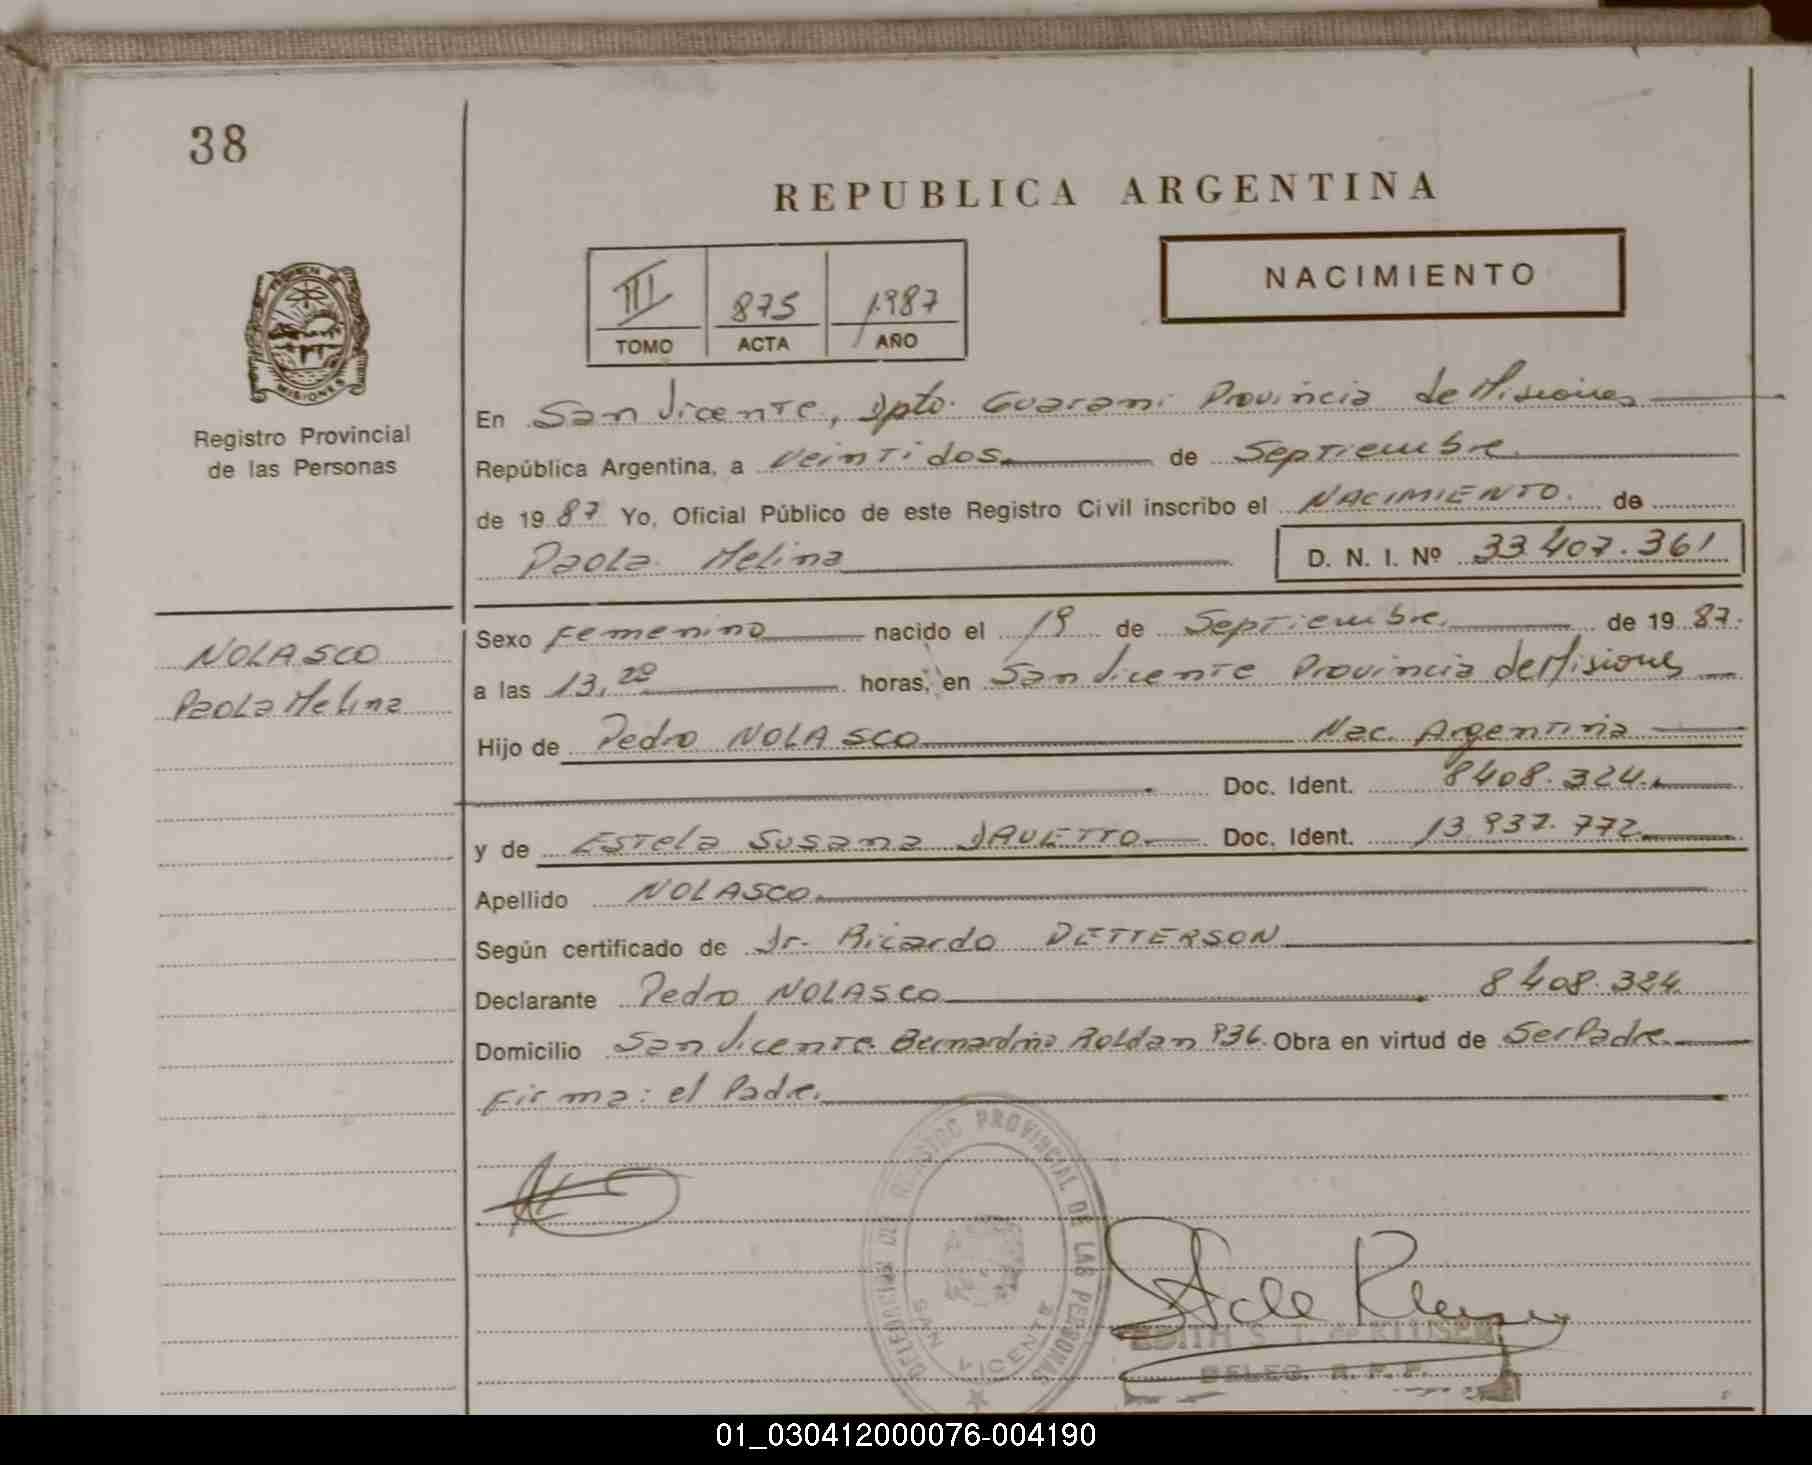 38
REPUBLICA ARGENTINA
NACIMIENTO
III 875 1987
TOMO ACTA AÑO
PROVINCIA DE MISIONES
Registro Provincial
de las Personas
En San Vicente, Dpto. Guarani Provincia de Misiones
República Argentina, a Veintidos de Septiembre
de 1987 Yo, Oficial Público de este Registro Civil inscribo el NACIMIENTO. de
Paola Melina D. N. I. Nº 33.407.361
NOLASCO
Paola Melina
Sexo Femenino nacido el 19 de Septiembre. de 1987.
a las 13,20 horas, en San Vicente Provincia de Misiones
Hijo de Pedro NOLASCO Nac. Argentina
Doc. Ident. 8408.324.
y de Estela Susana DAVETTO Doc. Ident. 13.937.772
Apellido NOLASCO
Según certificado de Dr. Ricardo PETTERSON
Declarante Pedro NOLASCO 8408.324
Domicilio San Vicente Bernardino Roldan 936. Obra en virtud de Ser Padre.
Firma: el Padre.
REGISTRO PROVINCIAL DE LAS PERSONAS
SAN VICENTE
EDITH S. T. de KLUSEN
DELEG. R. P. P.
01_030412000076-004190